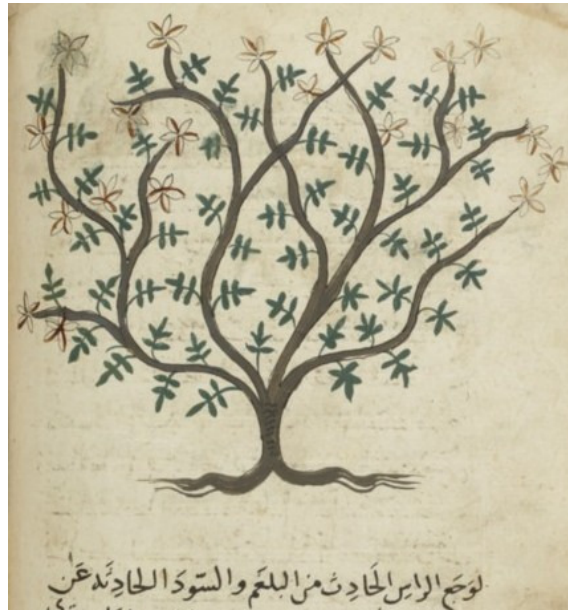 لوَجَع الراسِ الحَادِث من البلغَم والسّودَا الحادِثَه عَن